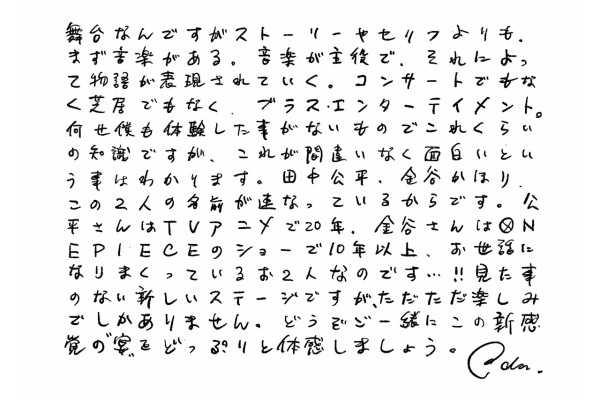 舞台なんですがストーリーやセリフよりも、
まず音楽がある。音楽が主役で、それによっ
て物語が表現されていく。コンサートでもな
く芝居でもなく、ブラス・エンターテイメント。
何せ僕も体験した事がないものでこれくらい
の知識ですが、これが間違いなく面白いとい
う事はわかります。田中公平、金谷かほり、
この2人の名前が連なっているからです。公
平さんはTVアニメで20年、金谷さんは⊗N
EPIECEのショーで10年以上、お世話に
なりまくっているお2人なのです…!!見た事
のない新しいステージですが、ただただ楽しみ
でしかありません。どうぞご一緒にこの新感
覚の"宴"をどっぷりと体感しましょう。
Oda.